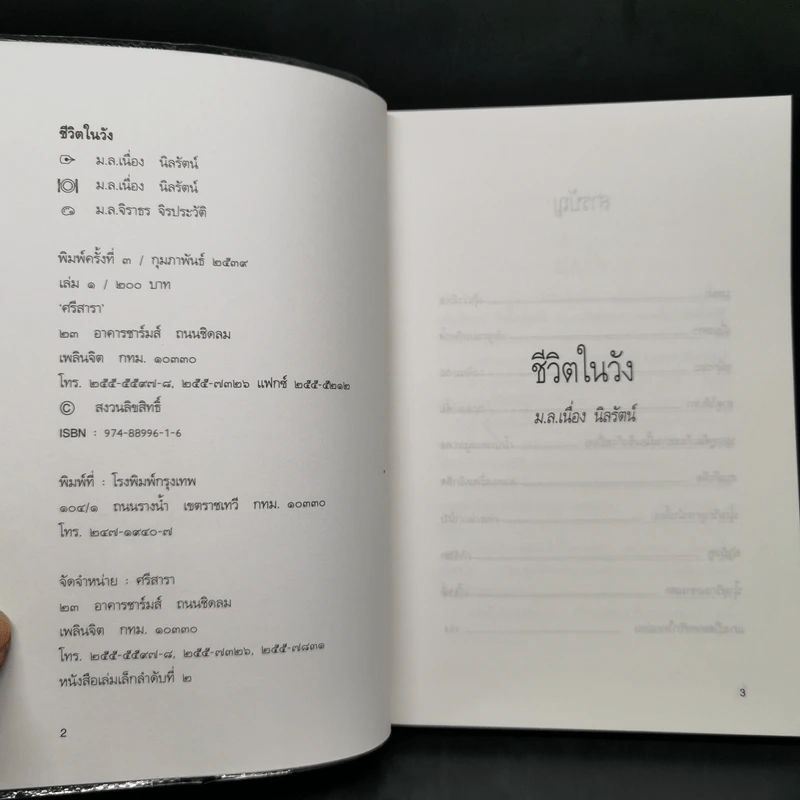 ชีวิตในวัง
ม.ล.เนื่อง นิลรัตน์
ม.ล.เนื่อง นิลรัตน์
ม.ล.จิราธร จิรประวัติ
พิมพ์ครั้งที่ ๓ / กุมภาพันธ์ ๒๕๓๙
เล่ม ๑ / ๒๐๐ บาท
'ศรีสารา'
๒๓ อาคารชาร์มส์ ถนนชิดลม
เพลินจิต กทม. ๑๐๓๓๐
โทร. ๒๕๕-๕๕๙๗-๘, ๒๕๕-๗๓๒๖ แฟกซ์ ๒๕๕-๕๒๑๒
© สงวนลิขสิทธิ์
ISBN : 974-88996-1-6
พิมพ์ที่ : โรงพิมพ์กรุงเทพ
๑๐๔/๑ ถนนรางน้ำ เขตราชเทวี กทม. ๑๐๓๓๐
โทร. ๒๔๗-๑๙๔๐-๗
จัดจำหน่าย : ศรีสารา
๒๓ อาคารชาร์มส์ ถนนชิดลม
เพลินจิต กทม. ๑๐๓๓๐
โทร. ๒๕๕-๕๕๙๗-๘, ๒๕๕-๗๓๒๖, ๒๕๕-๗๘๓๑
หนังสือเล่มเล็กลำดับที่ ๒
2
ชีวิตในวัง
ม.ล.เนื่อง นิลรัตน์
3